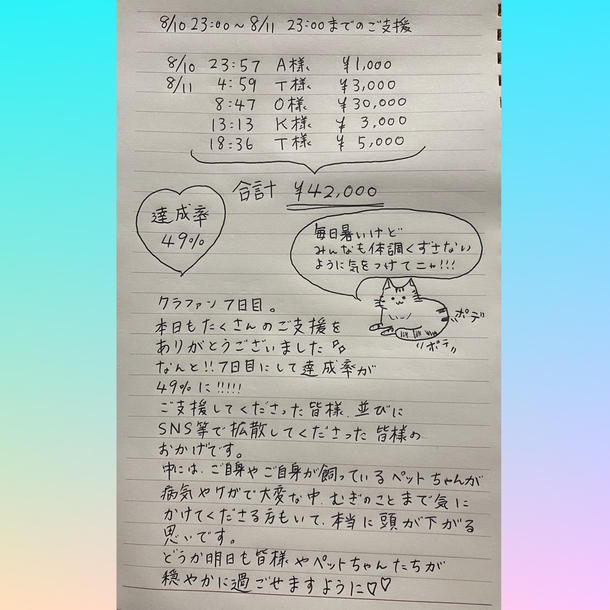 8/10 23:00~8/11 23:00までのご支援
8/10 23:57 A様 ¥1,000
8/11 4:59 T様 ¥3,000
8:47 O様 ¥30,000
13:13 K様 ¥3,000
18:36 T様 ¥5,000
合計 ¥42,000
達成率
49%
毎日暑いけど
みんなも体調くずさない
ように気をつけてニャ!!!
ポテ
ポテ
クラファン7日目。
本日もたくさんのご支援を
ありがとうございました
なんと!!7日目にして達成率が
49%に!!!!!
ご支援してくださった皆様、並びに
SNS等で拡散してくださった皆様の
おかげです。
中には、ご自身やご自身が飼っているペットちゃんが
病気やケガで大変な中、むぎのことまで気に
かけてくださる方もいて、本当に頭が下がる
思いです。
どうか明日も皆様やペットちゃんたちが
穏やかに過ごせますように♡♡